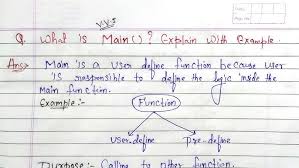 V.V.I
Date
Page No.
Q. What is Main()? Explain with Example.
Ans:→ Main is a user define function because user
is responsible to define the logic inside the
Main function.
Example:- Function
user-define pre-define
Purpose:- Calling to other function.